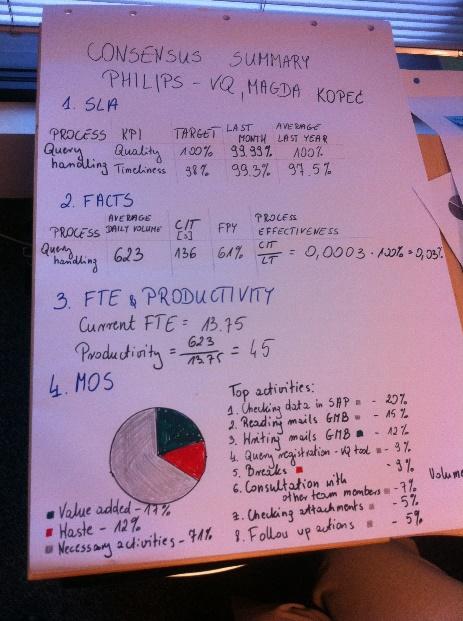 CONSENSUS SUMMARY
PHILIPS - VQ, MAGDA KOPEĆ
1. SLA
PROCESS KPI TARGET LAST MONTH AVERAGE LAST YEAR
Query handling Quality 100% 99.99% 100%
Timeliness 98% 99.3% 97.5%
2. FACTS
PROCESS AVERAGE DAILY VOLUME CIT [s] FPY PROCESS EFFECTIVENESS
Query handling 623 136 61% CIT/LT = 0,0003 · 100% = 0,03%
3. FTE & PRODUCTIVITY
Current FTE = 13.75
Productivity = 623/13.75 = 45
4. MOS
Top activities:
1. Checking data in SAP - 20%
2. Reading mails GMB - 15%
3. Writing mails GMB - 12%
4. Query registration - VQ tool - 9%
5. Breaks - 9%
6. Consultation with
other team members - 7%
7. Checking attachments - 5%
8. Follow up actions - 5%
Value added - 17%
Waste - 12%
Necessary activities - 71%
Volume